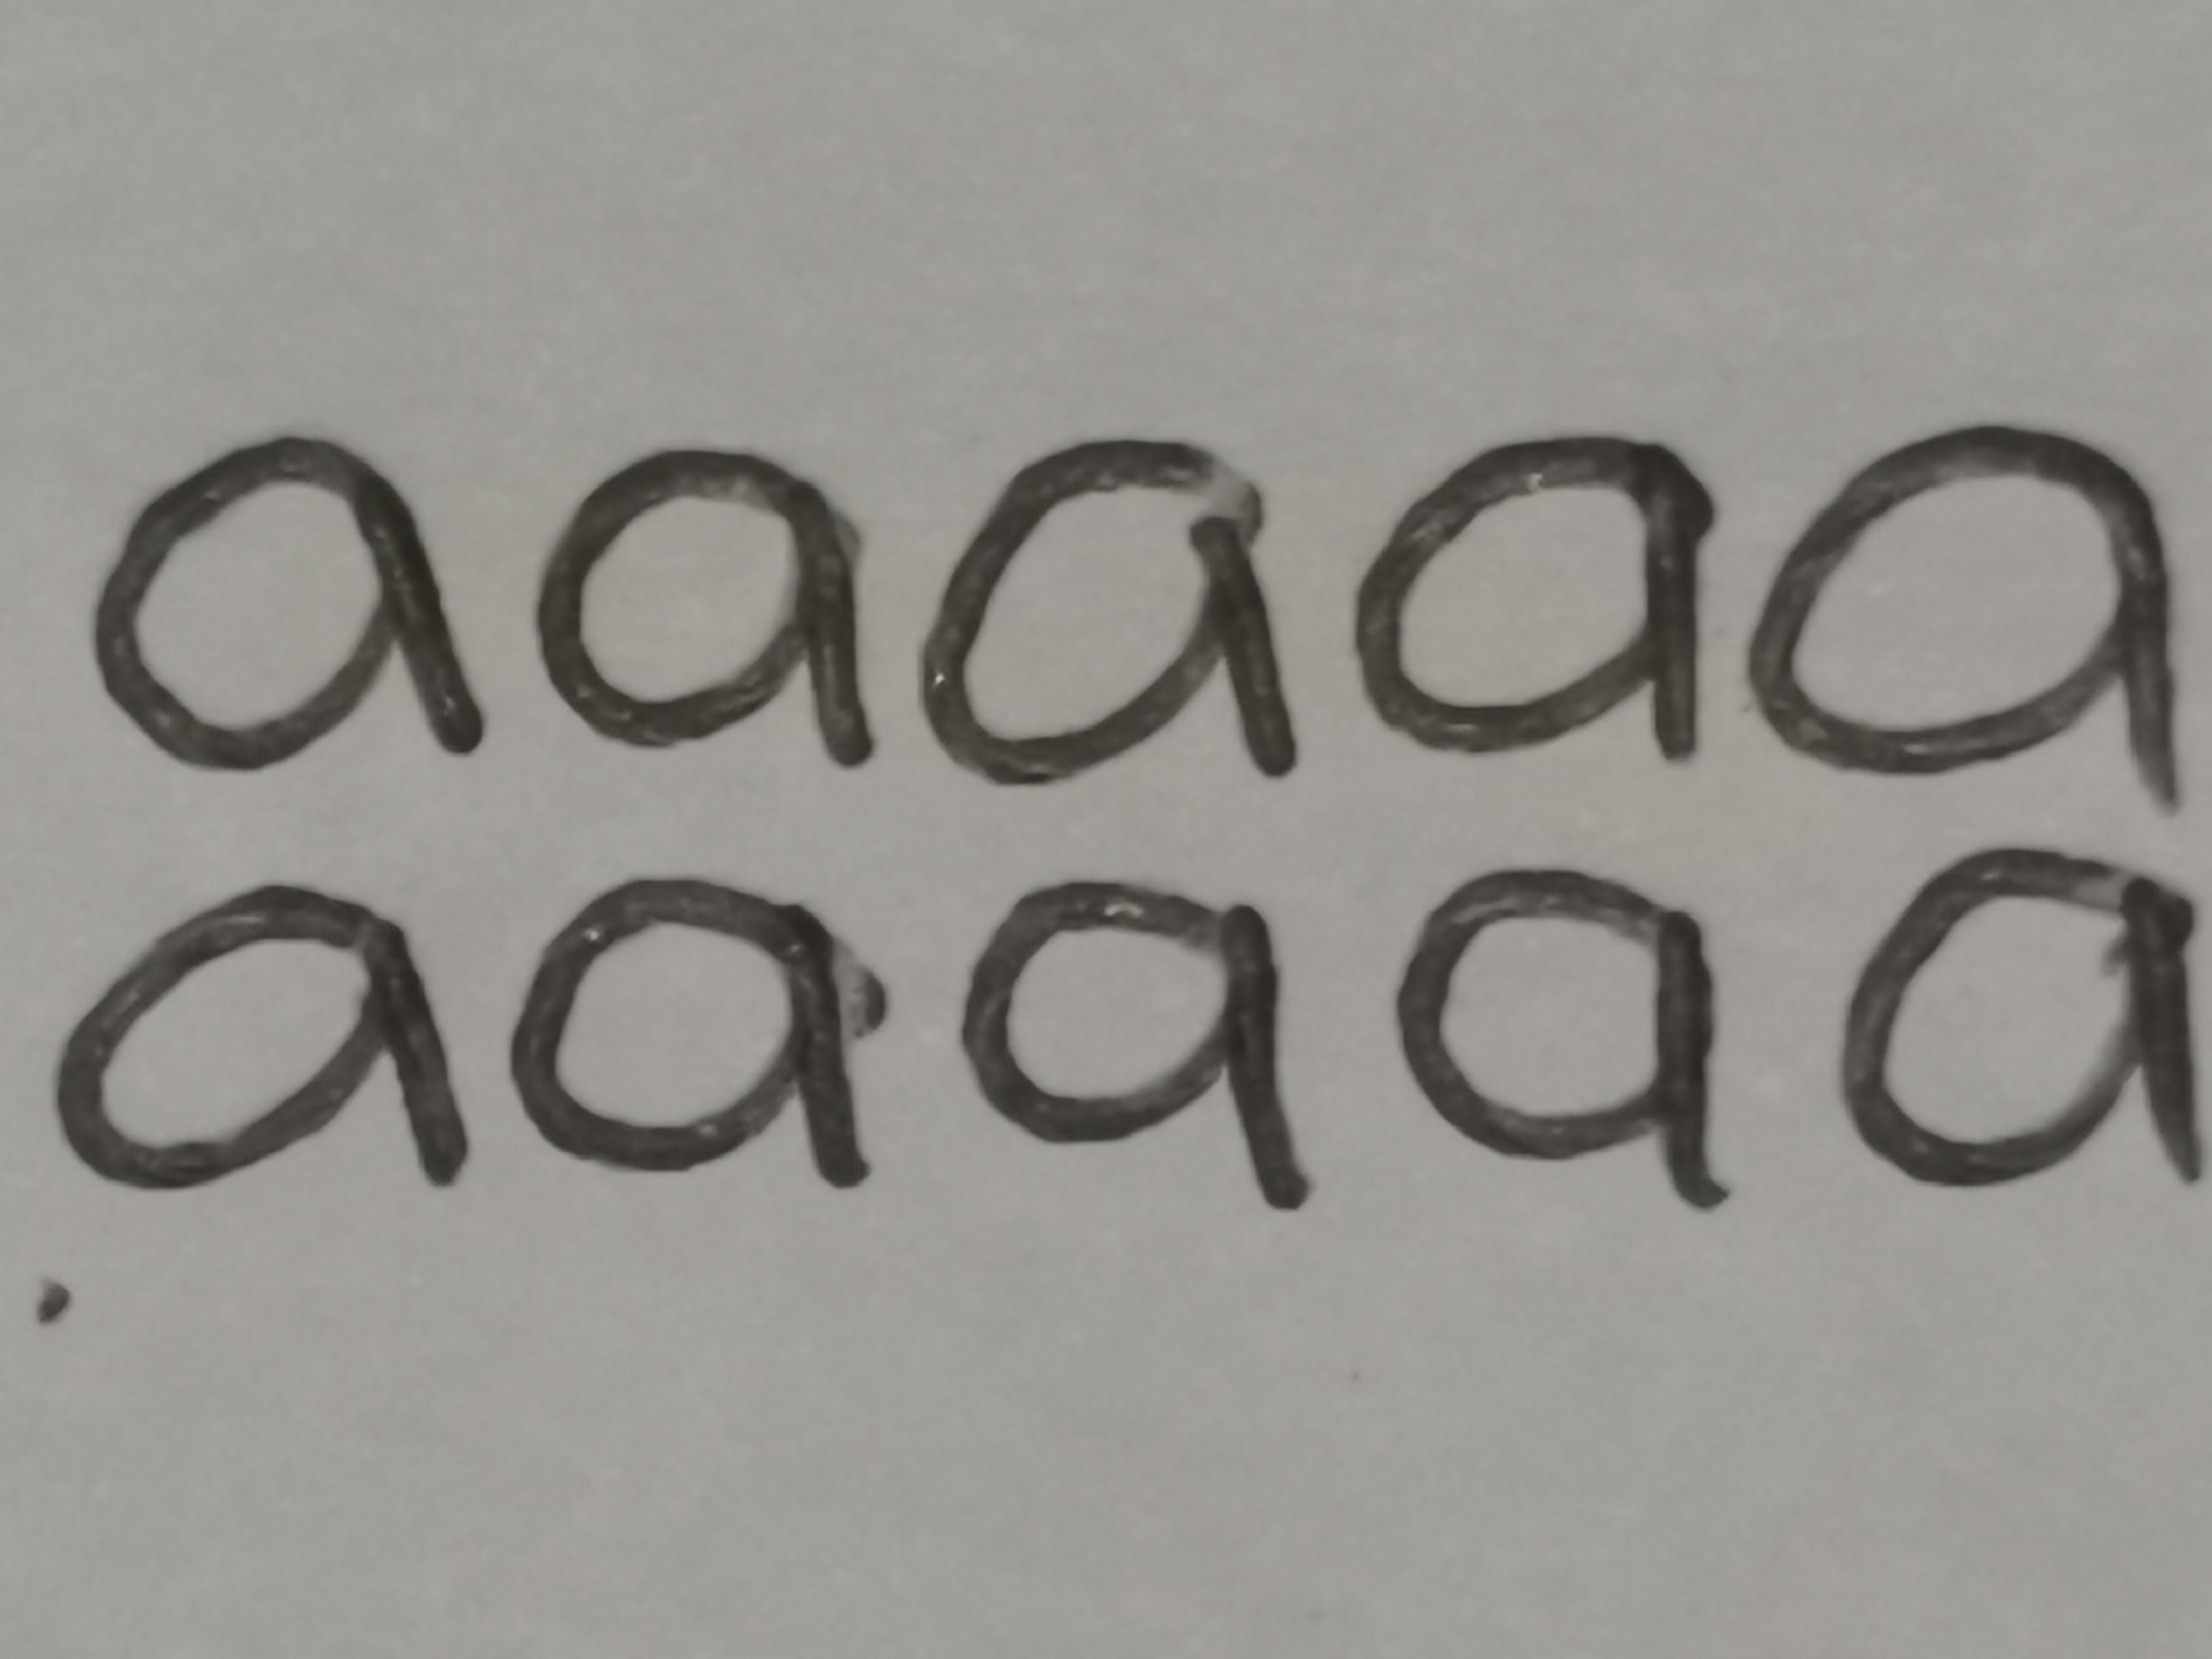 aaaaa
aaaaa